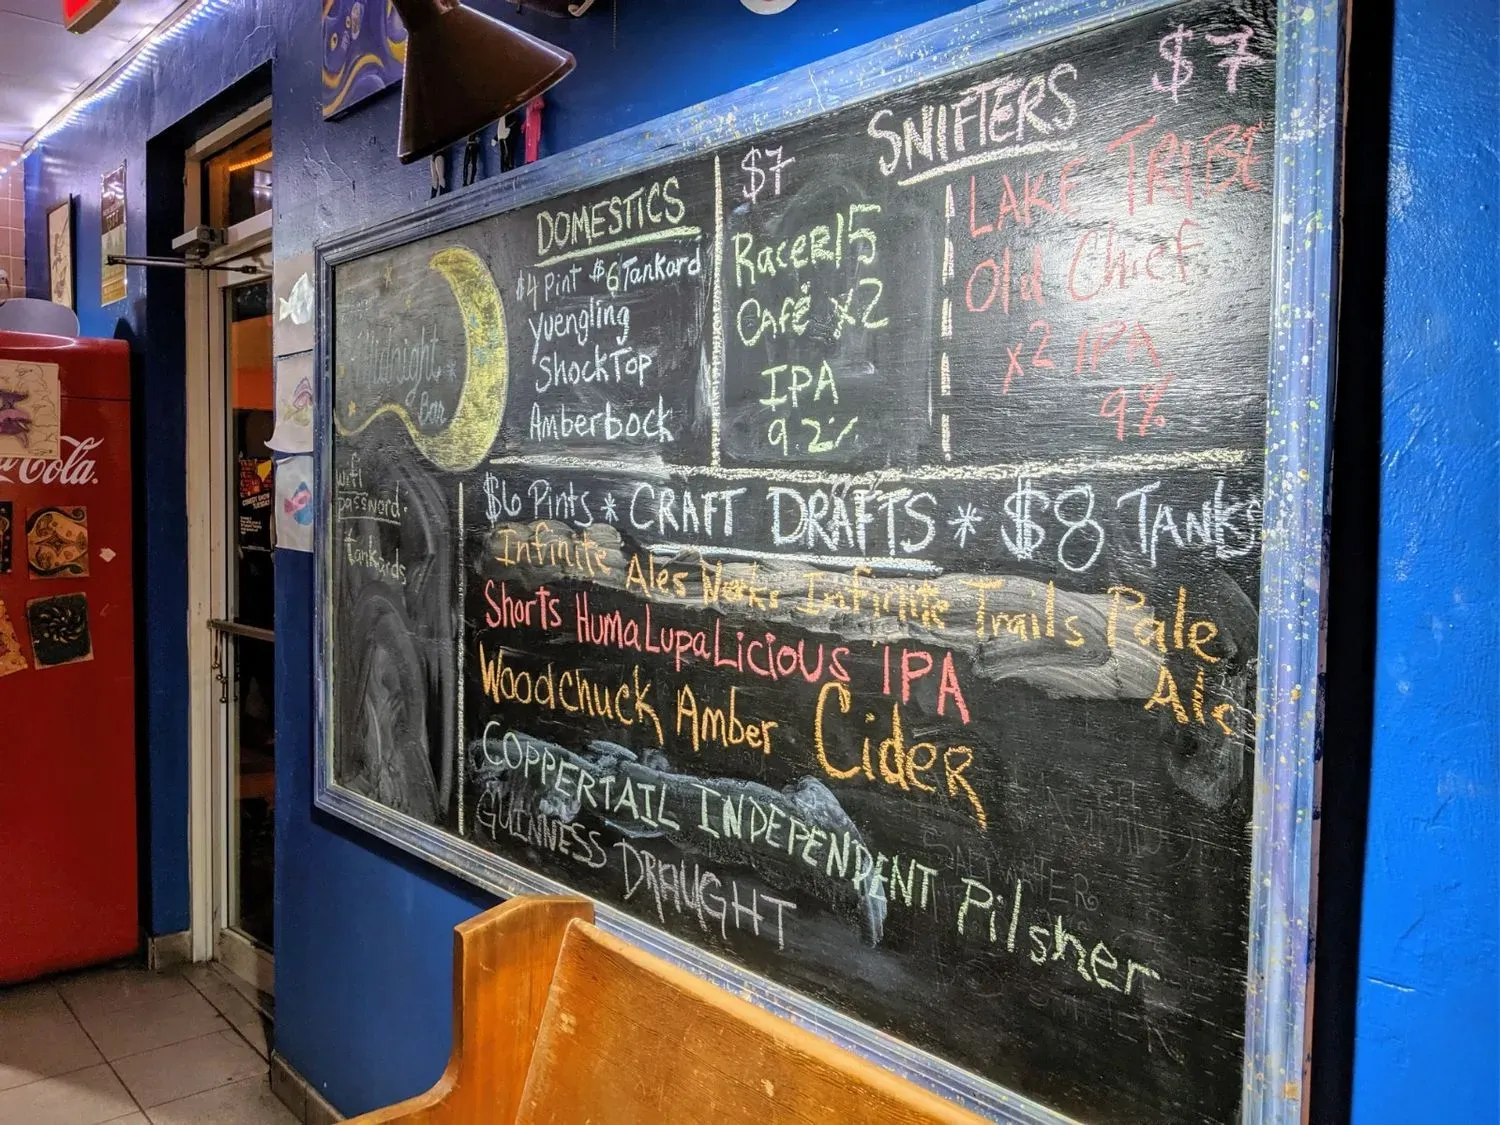 Midnight
Bar
wifi
password.
tankards
DOMESTICS
$4 Pint $6 Tankard
Yuengling
ShockTop
Amberbock
SNIFTERS
$7
RacerR15
Café x2
IPA
9.2%
$7
LAKE TRIBE
Old Chief
x2 IPA
9%
$6 Pints * CRAFT DRAFTS * $8 TANKS
Infinite Ales Works Infinite Trails Pale
Ale
Shorts HumaLupaLicious IPA
Woodchuck Amber Cider
COPPERTAIL INDEPENDENT Pilsner
GUINNESS DRAUGHT
Cola.